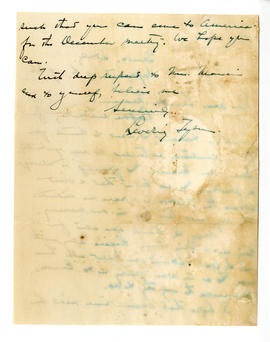 such that you can come to America
for the December meeting. We hope you
can.
With deep regard to Mrs.
and to yourself, believe me
Sincerely,
Levering Tyson